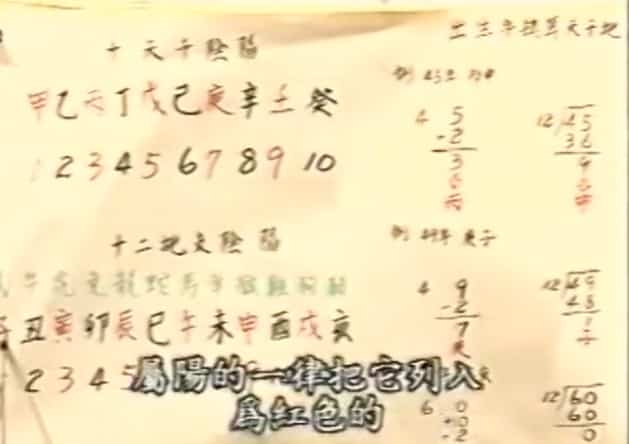 十天干陰陽
甲乙丙丁戊己庚辛壬癸
1 2 3 4 5 6 7 8 9 10
十二地支陰陽
牛 兔龍蛇馬羊猴雞狗
丑寅卯辰巳午未申酉戌亥
2 3 4 5
出生年換算天干地
例 45年 丙申
4 5
-2
3
丙
12 45
36
9
申
例 49年 庚子
4 9
-2
7
庚
12 49
48
1
子
6 0
+0
-2
12 60
60
0
屬陽的一律把它列入
為紅色的